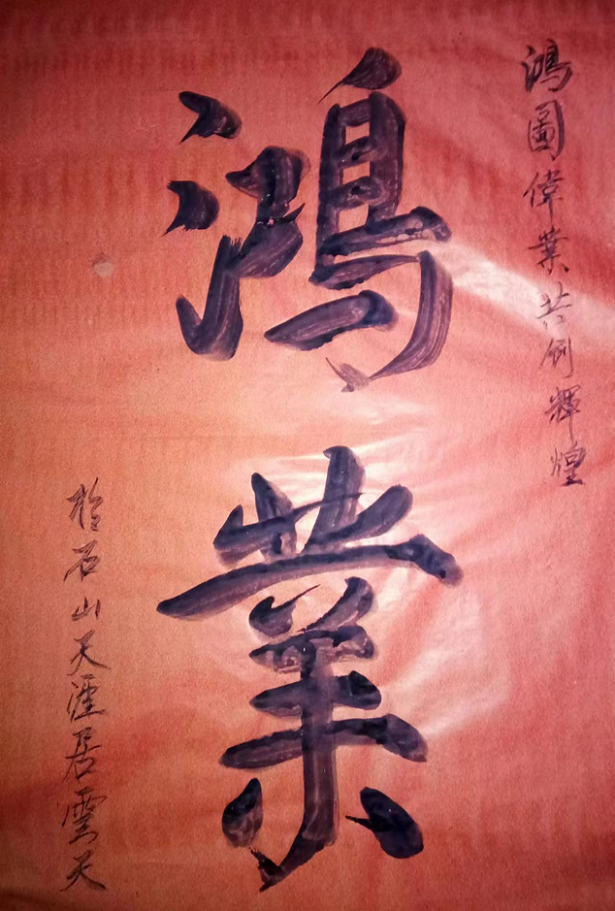 鴻圖偉業共創輝煌
鴻業
於石山天涯居雲天